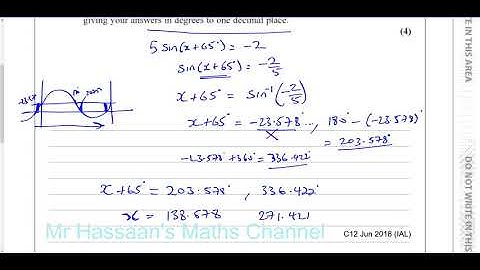 giving your answers in degrees to one decimal place.
(4)
5 sin(x+65°) = -2
sin(x+65°) = -2/5
x+65° = sin⁻¹(-2/5)
x+65° = -23.578°..., 180° - (-23.578°)
= 203.578°
-23.578 + 360° = 336.422°
x+65° = 203.578°, 336.422°
x = 138.578 271.421
Mr Hassaan's Maths Channel
C12 Jun 2016 (IAL)
DO NOT WRITE IN THIS
TE IN THIS AREA